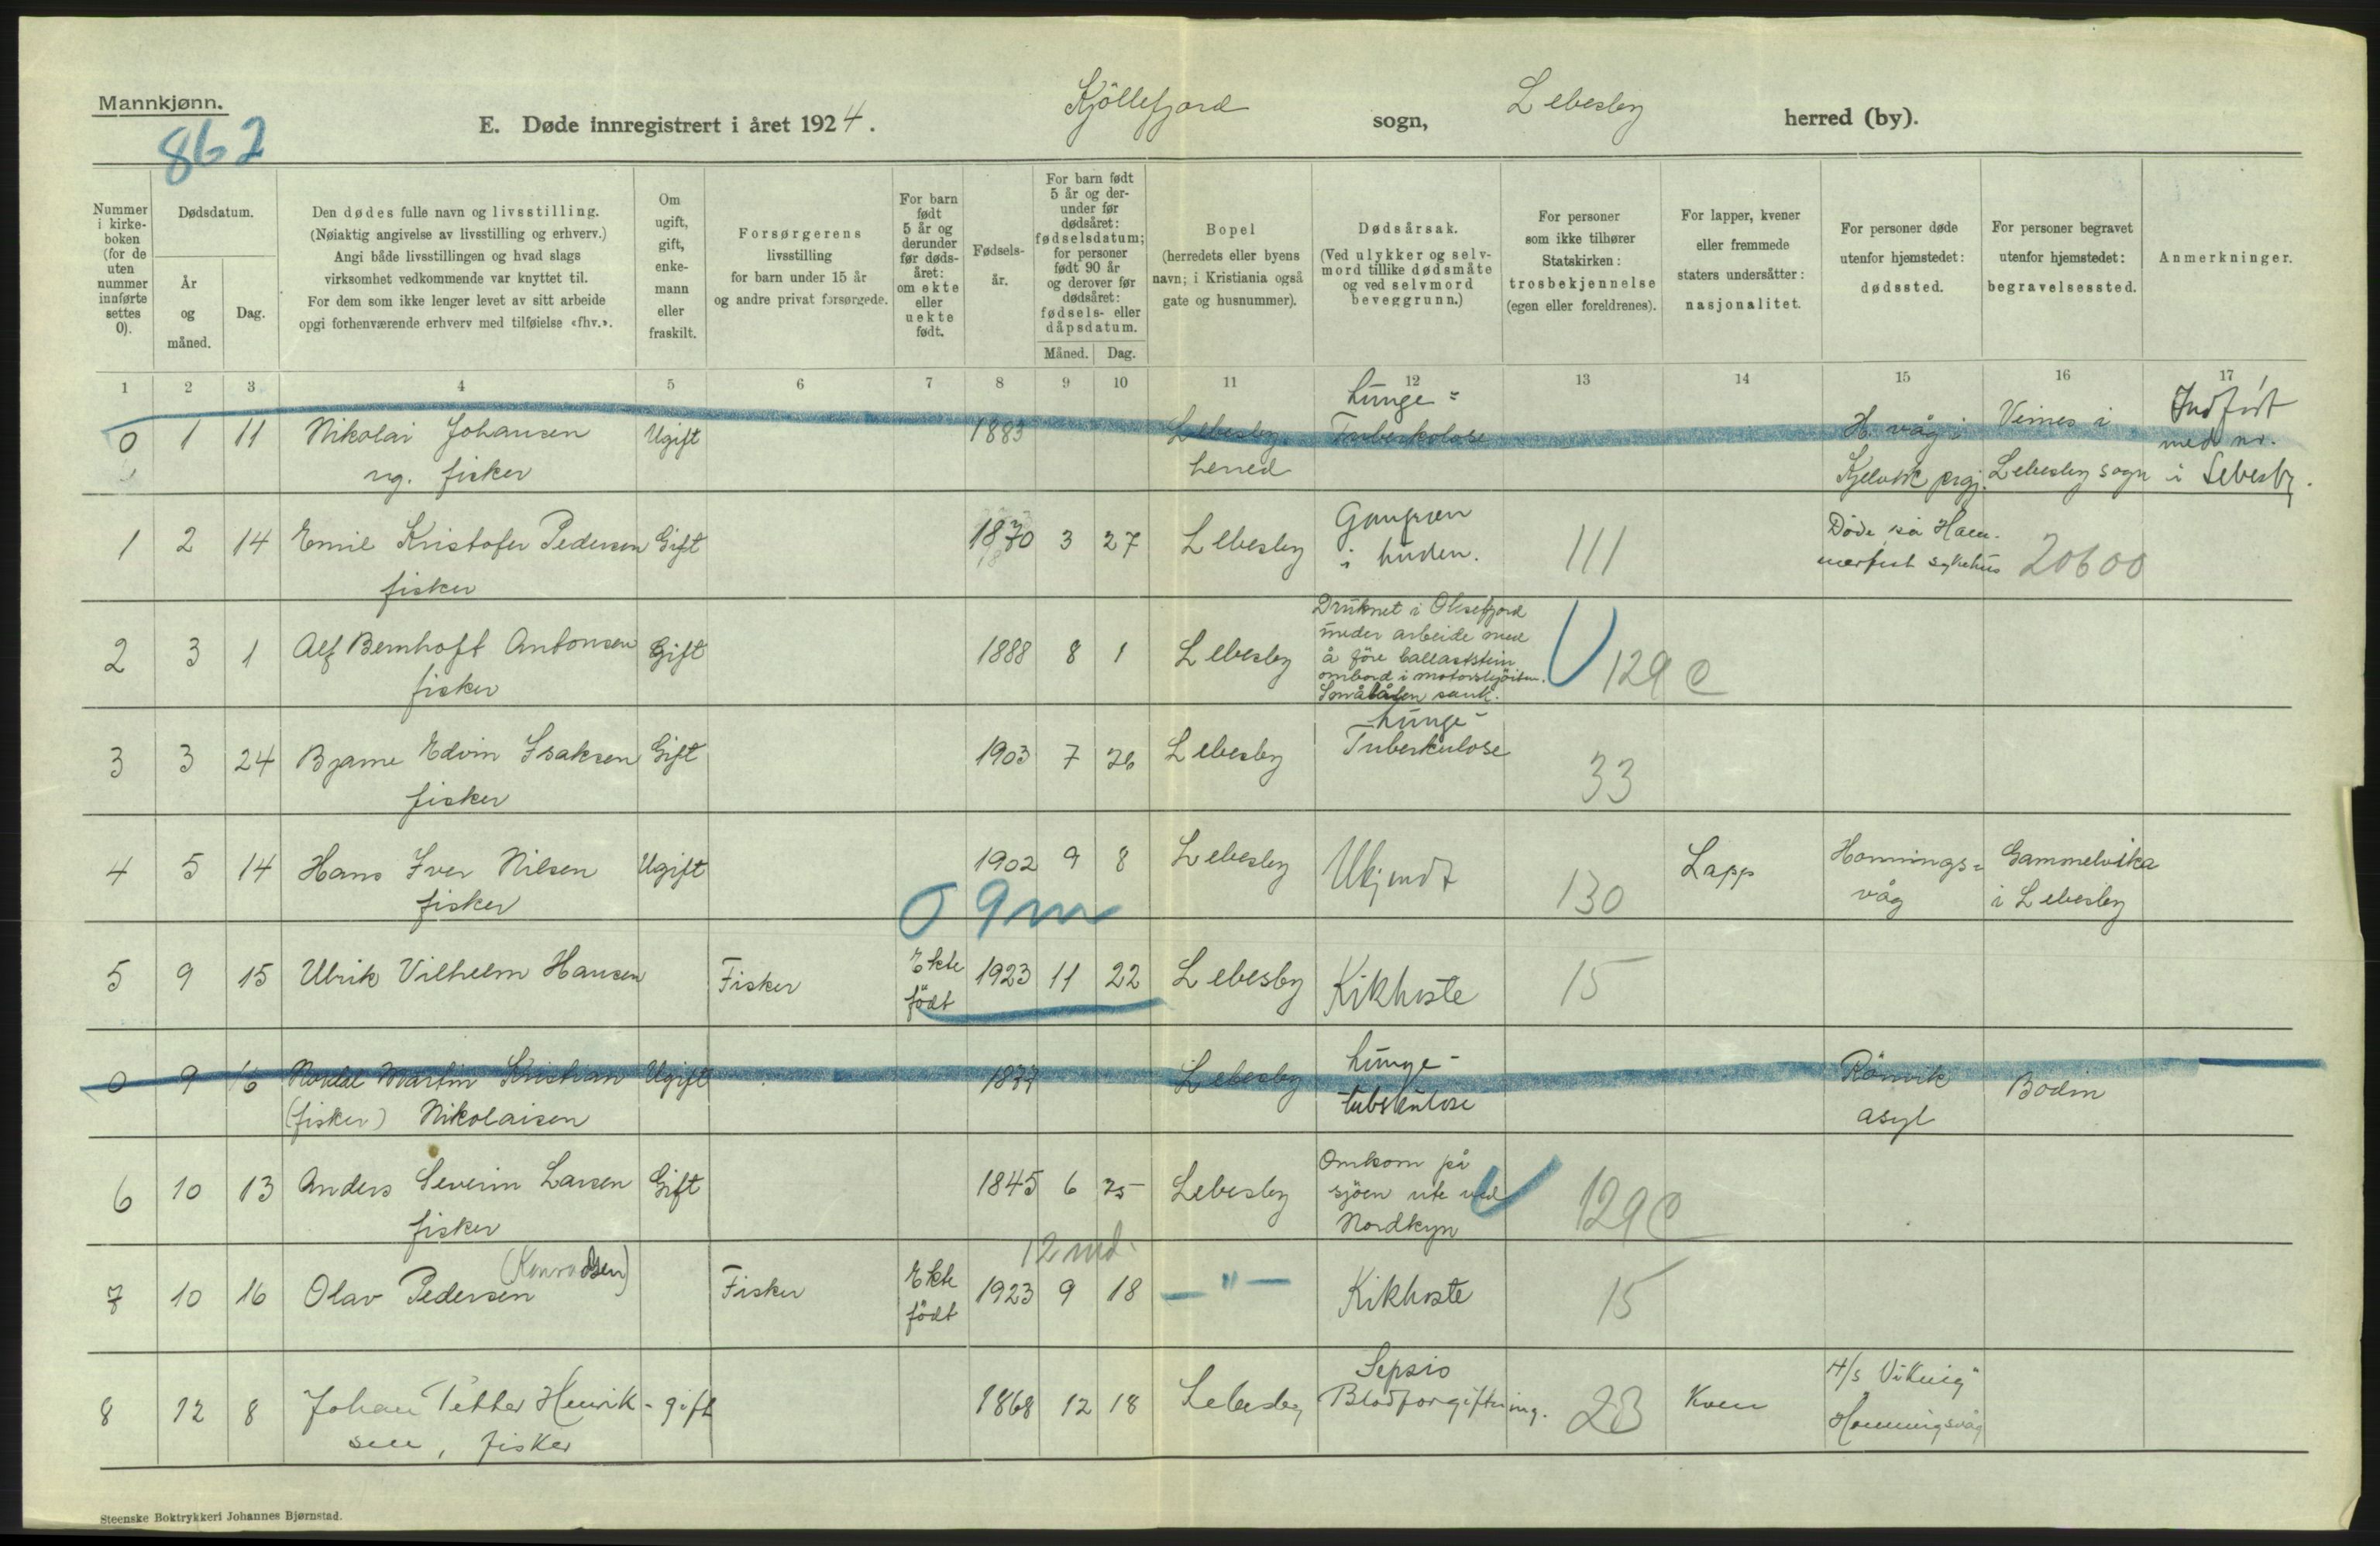 Mannkjønn.
862
E. Døde innregistrert i året 1924.
Kjöllefjord sogn, Lebesby herred (by).
Nummer i kirkeboken (for de uten nummer innførte settes 0).
Dødsdatum.
År og måned.
Dag.
Den dødes fulle navn og livsstilling.
(Nøiaktig angivelse av livsstilling og erhverv.)
Angi både livsstillingen og hvad slags
virksomhet vedkommende var knyttet til.
For dem som ikke lenger levet av sitt arbeide
opgi forhenværende erhverv med tilføielse «fhv.».
Om ugift, gift, enkemann eller fraskilt.
Forsørgerens
livsstilling
for barn under 15 år
og andre privat forsørgede.
For barn født 5 år og derunder før dødsåret: om ekte eller uekte født.
Fødselsår.
For barn født 5 år og derunder før dødsåret: fødselsdatum; for personer født 90 år og derover før dødsåret: fødsels- eller dåpsdatum.
Måned. Dag.
Bopel
(herredets eller byens
navn; i Kristiania også
gate og husnummer).
Dødsårsak.
(Ved ulykker og selv-
mord tillike dødsmåte
og ved selvmord
beveggrunn.)
For personer
som ikke tilhører
Statskirken:
trosbekjennelse
(egen eller foreldrenes).
For lapper, kvener
eller fremmede
staters undersåtter:
nasjonalitet.
For personer døde
utenfor hjemstedet:
dødssted.
For personer begravet
utenfor hjemstedet:
begravelsessted.
Anmerkninger.
1 2 3 4 5 6 7 8 9 10 11 12 13 14 15 16 17
0 1 11 Nikolai Johansen Ugift 1883 Lebesby Lunge= Tuberkolose H. våg i Veines i Indført med nr.
ug. fisker herred Kjelvik prgj. Lebesby sogn i Lebesby.
1 2 14 Emil Kristofer Pedersen Gift 1870 3 27 Lebesby i huden. 111 Döde på Ham- 20600
fisker merfest sykehus
2 3 1 Alf Bernhoft Antonsen Gift 1888 8 1 Lebesby Druknet i
under arbeide med
å före ballaststein
ombord i motorskjöiten.
Småbåten sank. 129 C
fisker
3 3 24 Bjarne Edvin Isaksen Gift 1903 7 26 Lebesby Lunge- Tuberkulose 33
fisker
4 5 14 Hans Iver Nilsen Ugift 1902 9 8 Lebesby Ukjendt 130 Lapp Honnings= Gammelvika
fisker våg i Lebesby
0 9 m
5 9 15 Ulrik Vilhelm Hansen Fisker Ekte födt 1923 11 22 Lebesby Kikhoste 15
0 9 16 Martin Kristian Ugift 1877 Lebesby Lunge- Rönvik Bodin
(fisker) Nikolaisen tubskulose asyl
6 10 13 Anders Severin Larsen Gift 1845 6 25 Lebesby Omkom på
sjöen ute ved
Nordkyn 129 C
fisker
12 md.
7 10 16 Olav Pedersen (Konradsen) Fisker Ekte födt 1923 9 18 — " — Kikhoste 15
8 12 8 Johan Petter Henrik- gift 1868 12 18 Lebesby Sepsis Blodforgiftning. 23 Kven M/s Viking"
sen, fisker Honningsvåg
Steenske Boktrykkeri Johannes Bjørnstad.